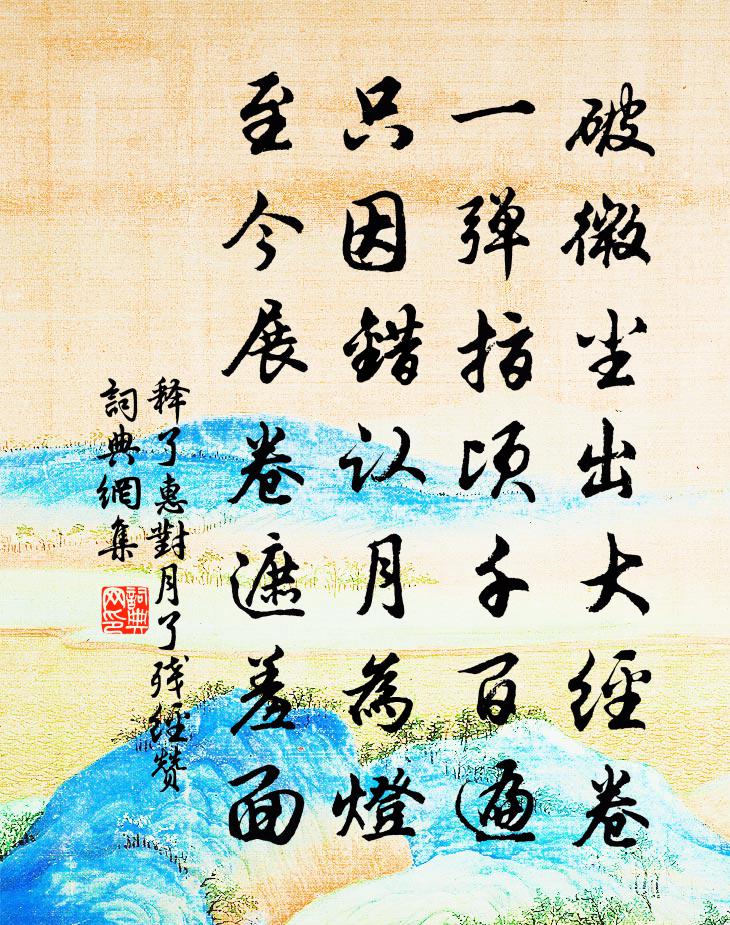 破微尘出大经卷
一弹指顷千百遍
只因錯认月為燈
至今展卷遮羞面
释了惠對月了残經赞
詞典網集
詞典
网印